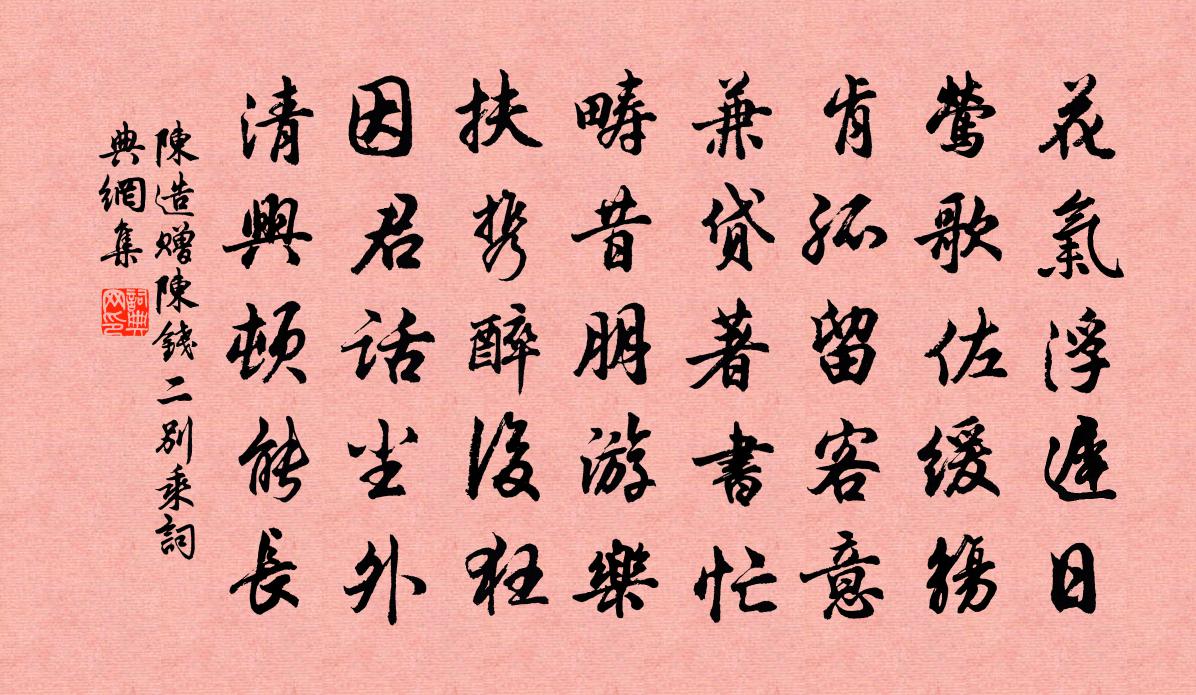 花氣浮遲日
鶯歌佐緩觴
肯孤留客意
兼貸著書忙
疇昔朋游樂
扶携醉後狂
因君話尘外
清興頓能長
陳造贈陳錢二別乘詞
典網集
詞典
网印